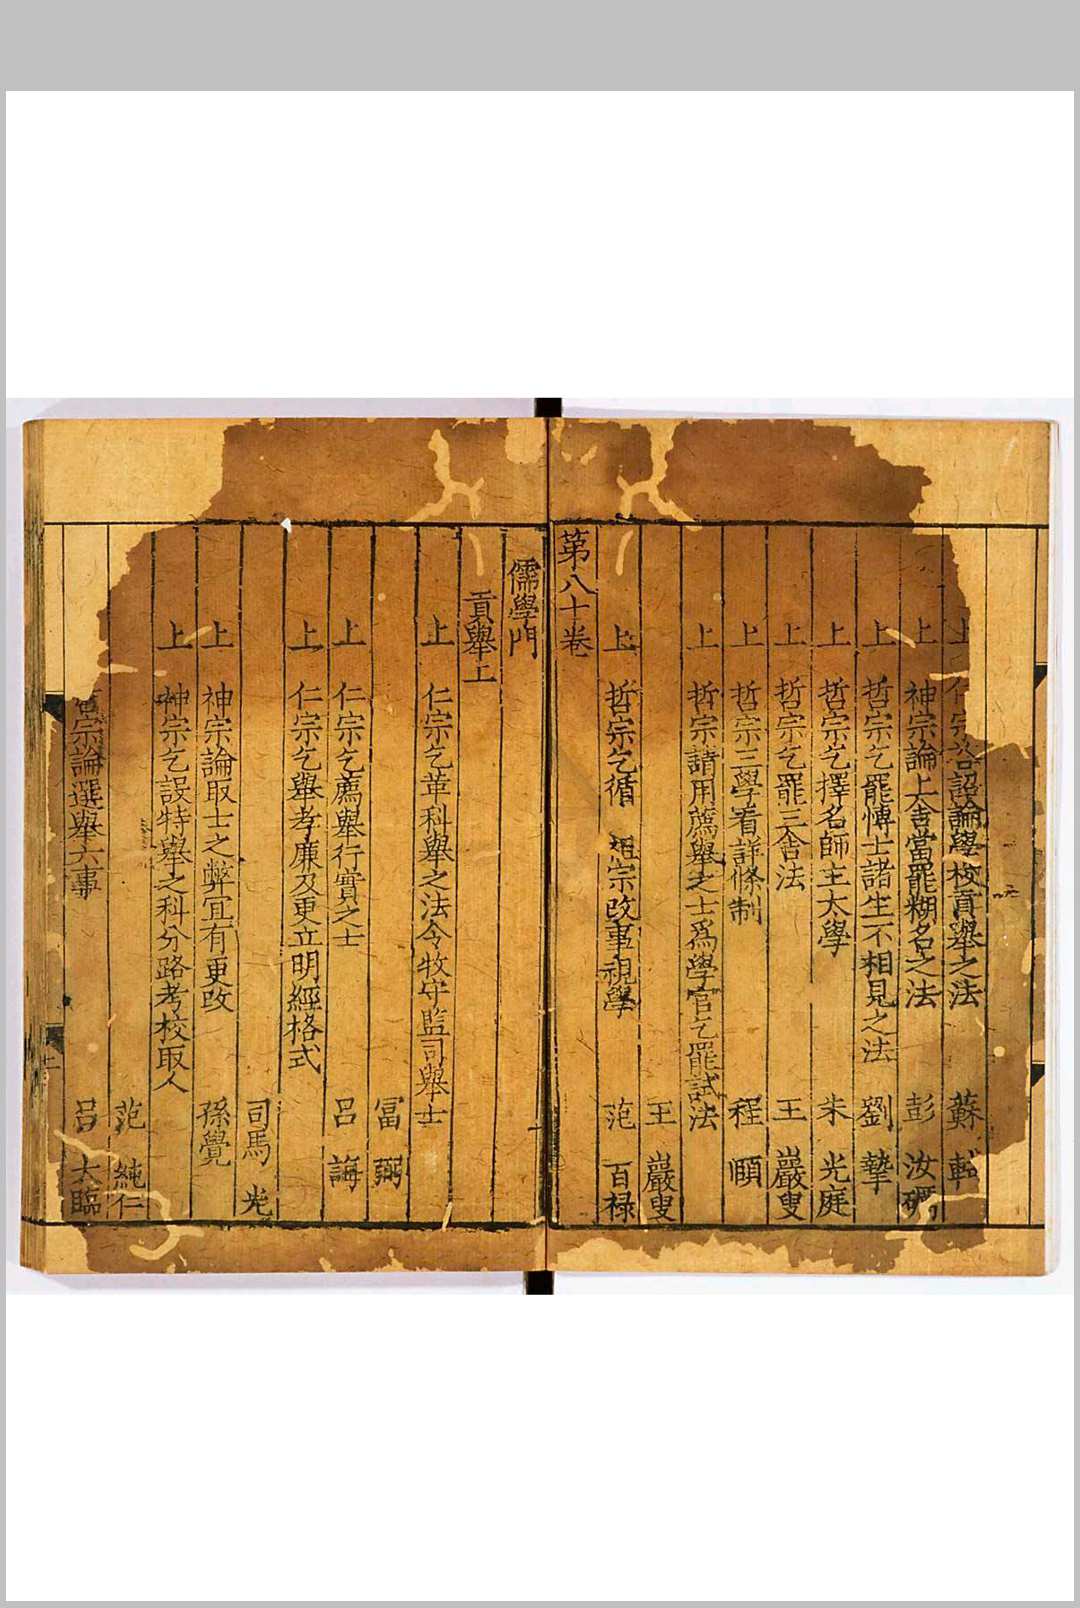 上 仁宗答詔論學校貢舉之法 蘇 軾
上 神宗論上舍當罷糊名之法 彭 汝礪
上 哲宗乞罷博士諸生不相見之法 劉 摯
上 哲宗乞擇名師主太學 朱 光庭
上 哲宗乞罷三舍法 王 巖叟
上 哲宗三學看詳條制 程 頤
上 哲宗請用薦舉之士爲學官乞罷試法
王 巖叟
上 哲宗乞循 祖宗故事視學 范 百禄
第八十卷
儒學門
貢舉上
上 仁宗乞革科舉之法令牧守監司舉士
富 弼
上 仁宗乞薦舉行實之士 呂 誨
上 仁宗乞舉孝廉及更立明經格式
司馬 光
上 神宗論取士之弊宜有更改 孫覺
上 神宗乞設特舉之科分路考校取人
范 純仁
宗論選舉六事 呂 大臨